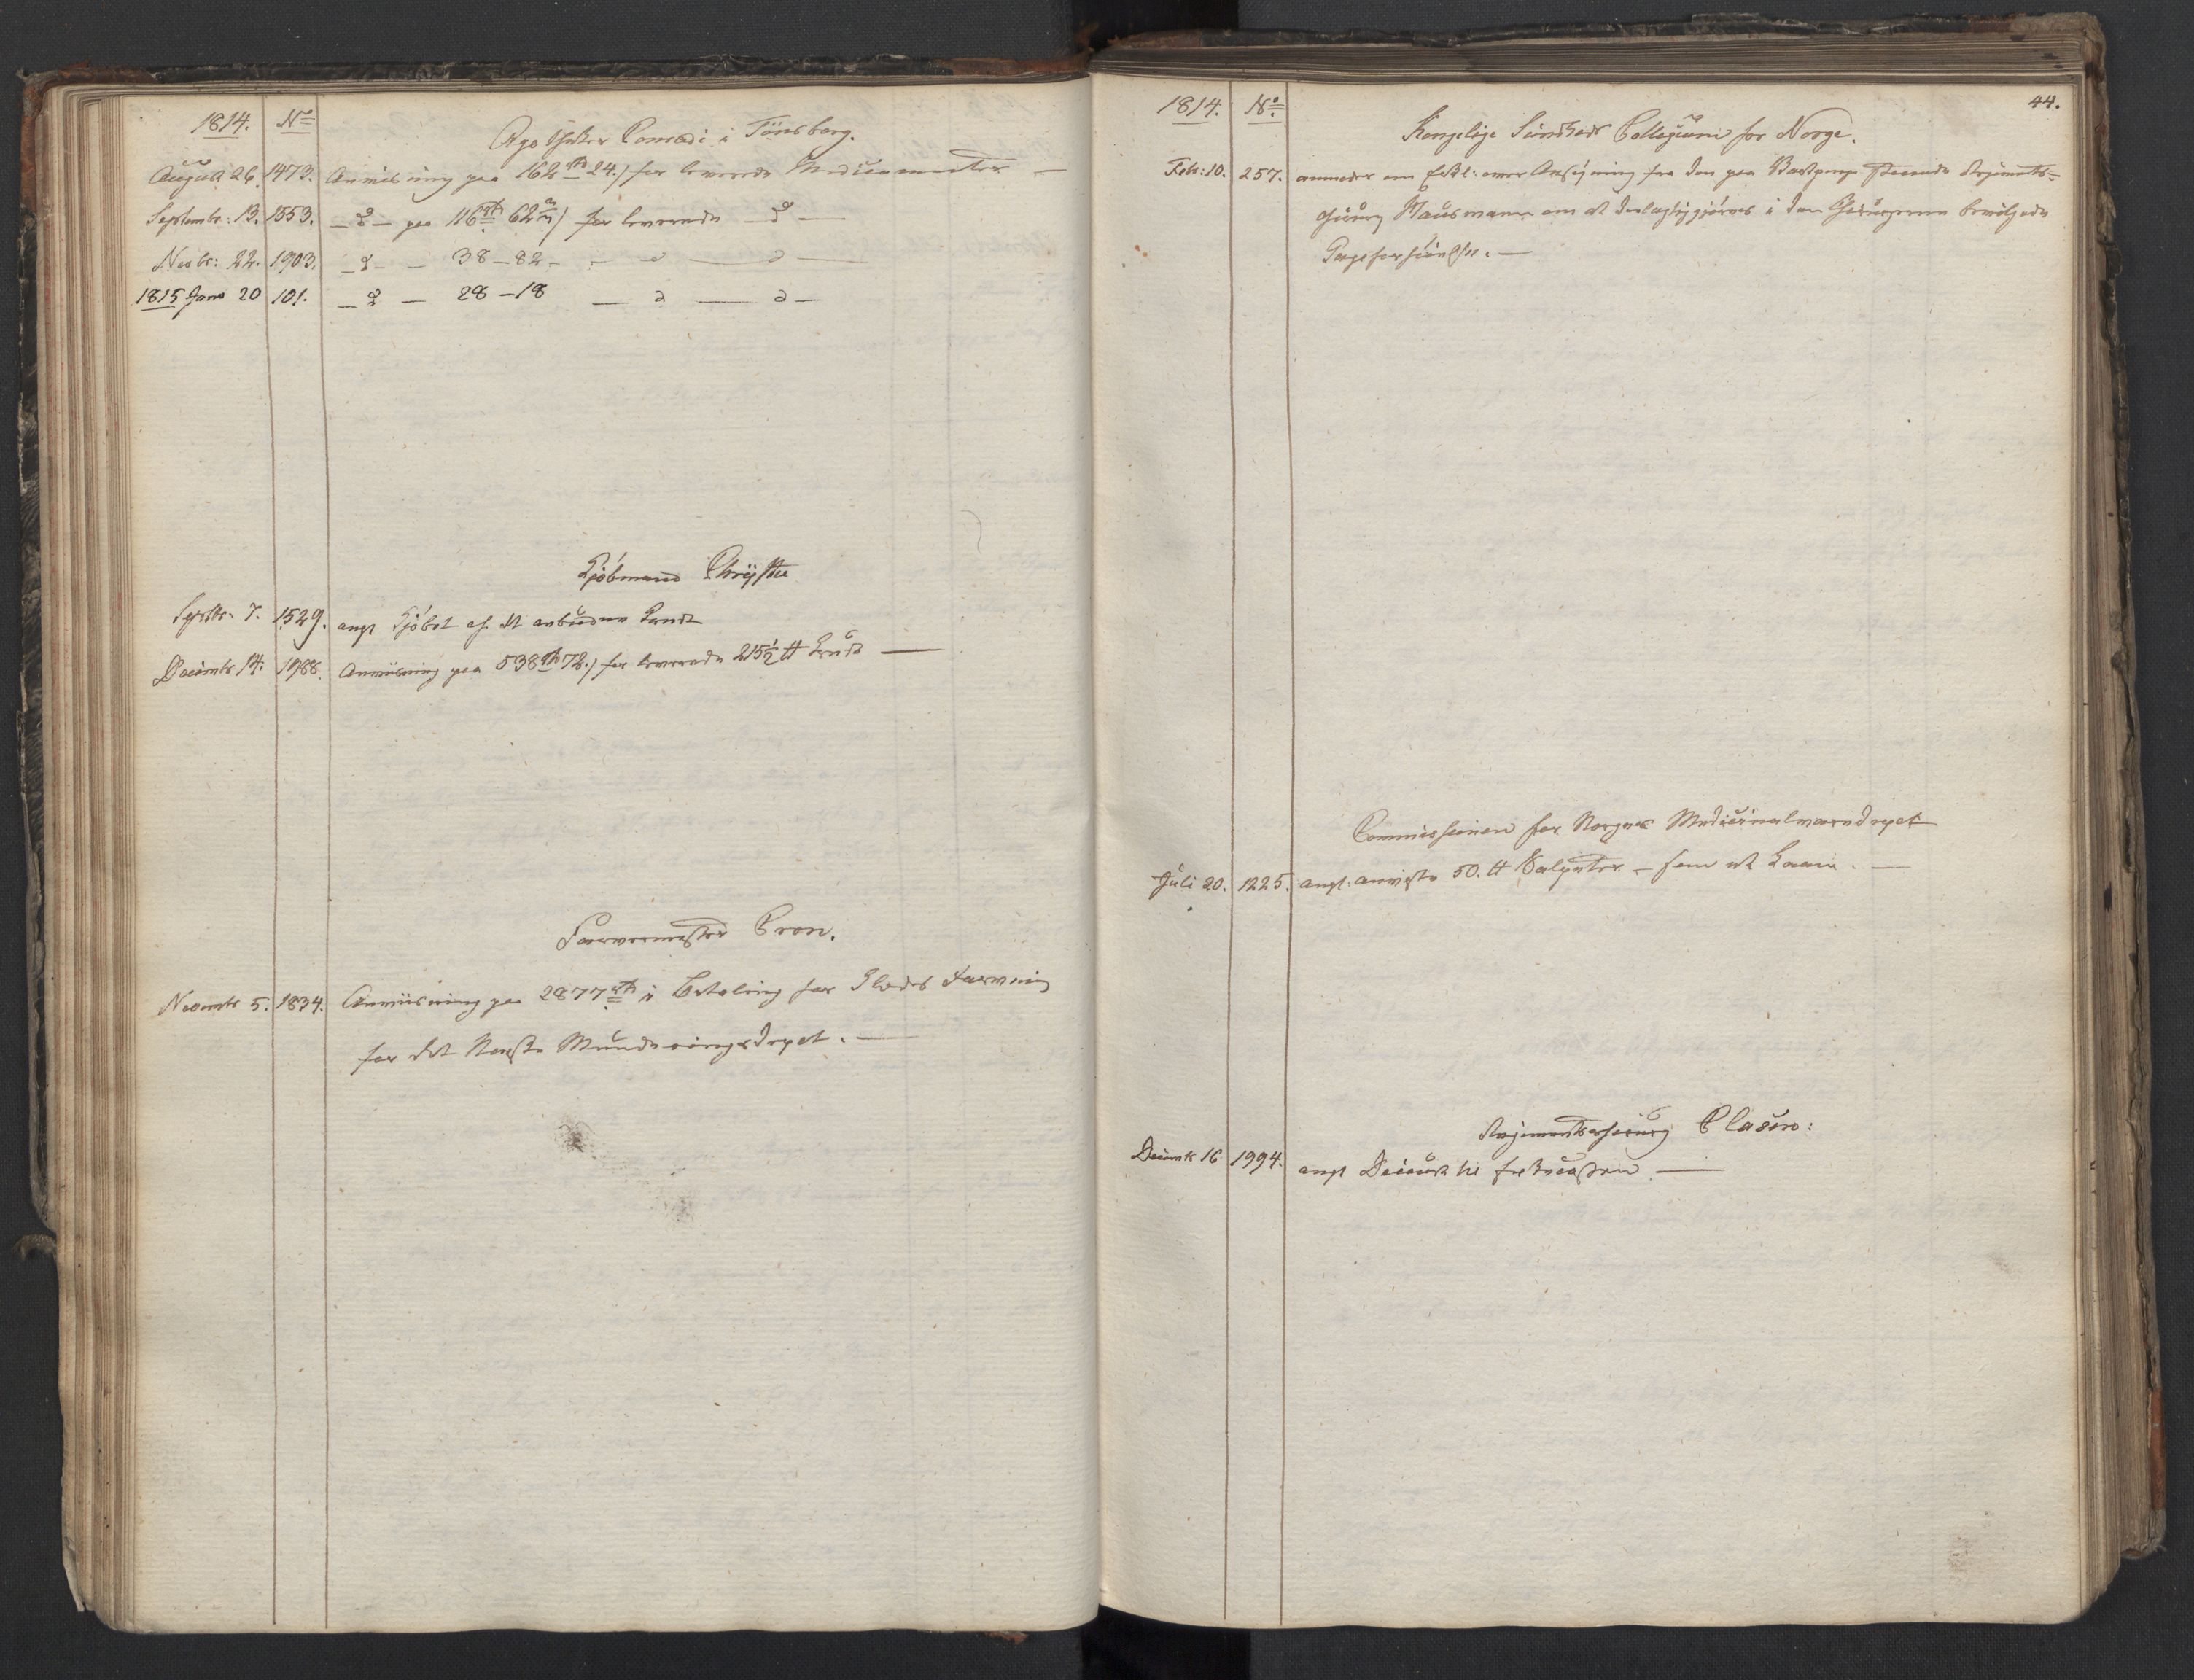 1814. No
Apotheker Conradi i Tönsberg.
August 26. 1473. Anviisning paa 162 rd 24 s for leverede Medicamenter —
Septembr: 13. 1553. — d — paa 116 rd 62 s for leverede — d —
Novbr: 22. 1903. — d — — 38 – 82 – — d — d —
1815 Janr 20 101. — d — 28 – 18 — d — d —
Kjöbmand Chrystie
Septbr. 7. 1529. angt Kjöbet af et anbuden
Decembr 14. 1988. Anviisning paa 538 rd 72 s for leverede 215½ ℔ Krudt —
Farvermester Cron.
Novembr 5. 1834. Anviisning paa 2877 rd i Betaling for Klædes Farvning
for det Norske Munderingsdepot. —
1814. No. 44.
Kongelige Sundheds Collegium for Norge.
Feb: 10. 257. anmoder om Erkl: over Ansögning fra den paa staaende Regiments-
chirurg Hausmann om at deelagtiggjöres i den Chirurgerne bevilgede
Gageforhöielse. —
Commissionen for Norges Medicinalvaredepot
Juli 20. 1225. angt. anviste 50 ℔ Salpeter – som et Laan. —
Regimentschirurg Clasen:
Decembr 16 1994. angt